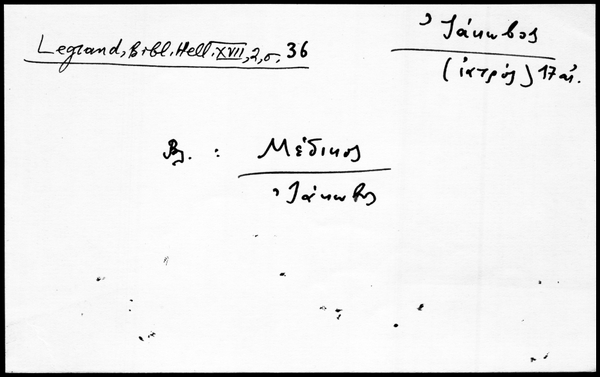 Legrand, Bibl. Hell. XVII, 2, σ. 36
Ἰάκωβος
(ἰατρός) 17 αἰ.
Βλ. : Μέδικος
Ἰάκωβος